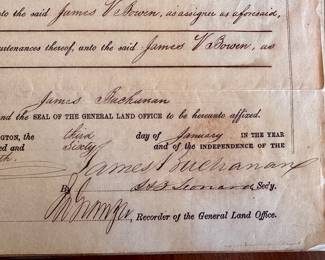 to the said James V Bowen, as assignee as aforesaid,
urtenances thereof, unto the said James V. Bowen, as
James Buchanan
and the SEAL OF THE GENERAL LAND OFFICE to be hereunto affixed.
NGTON, the third day of January IN THE YEAR
red and Sixty and of the INDEPENDENCE OF THE
th.
James Buchanan
By Leonard Sec'y.
Recorder of the General Land Office.